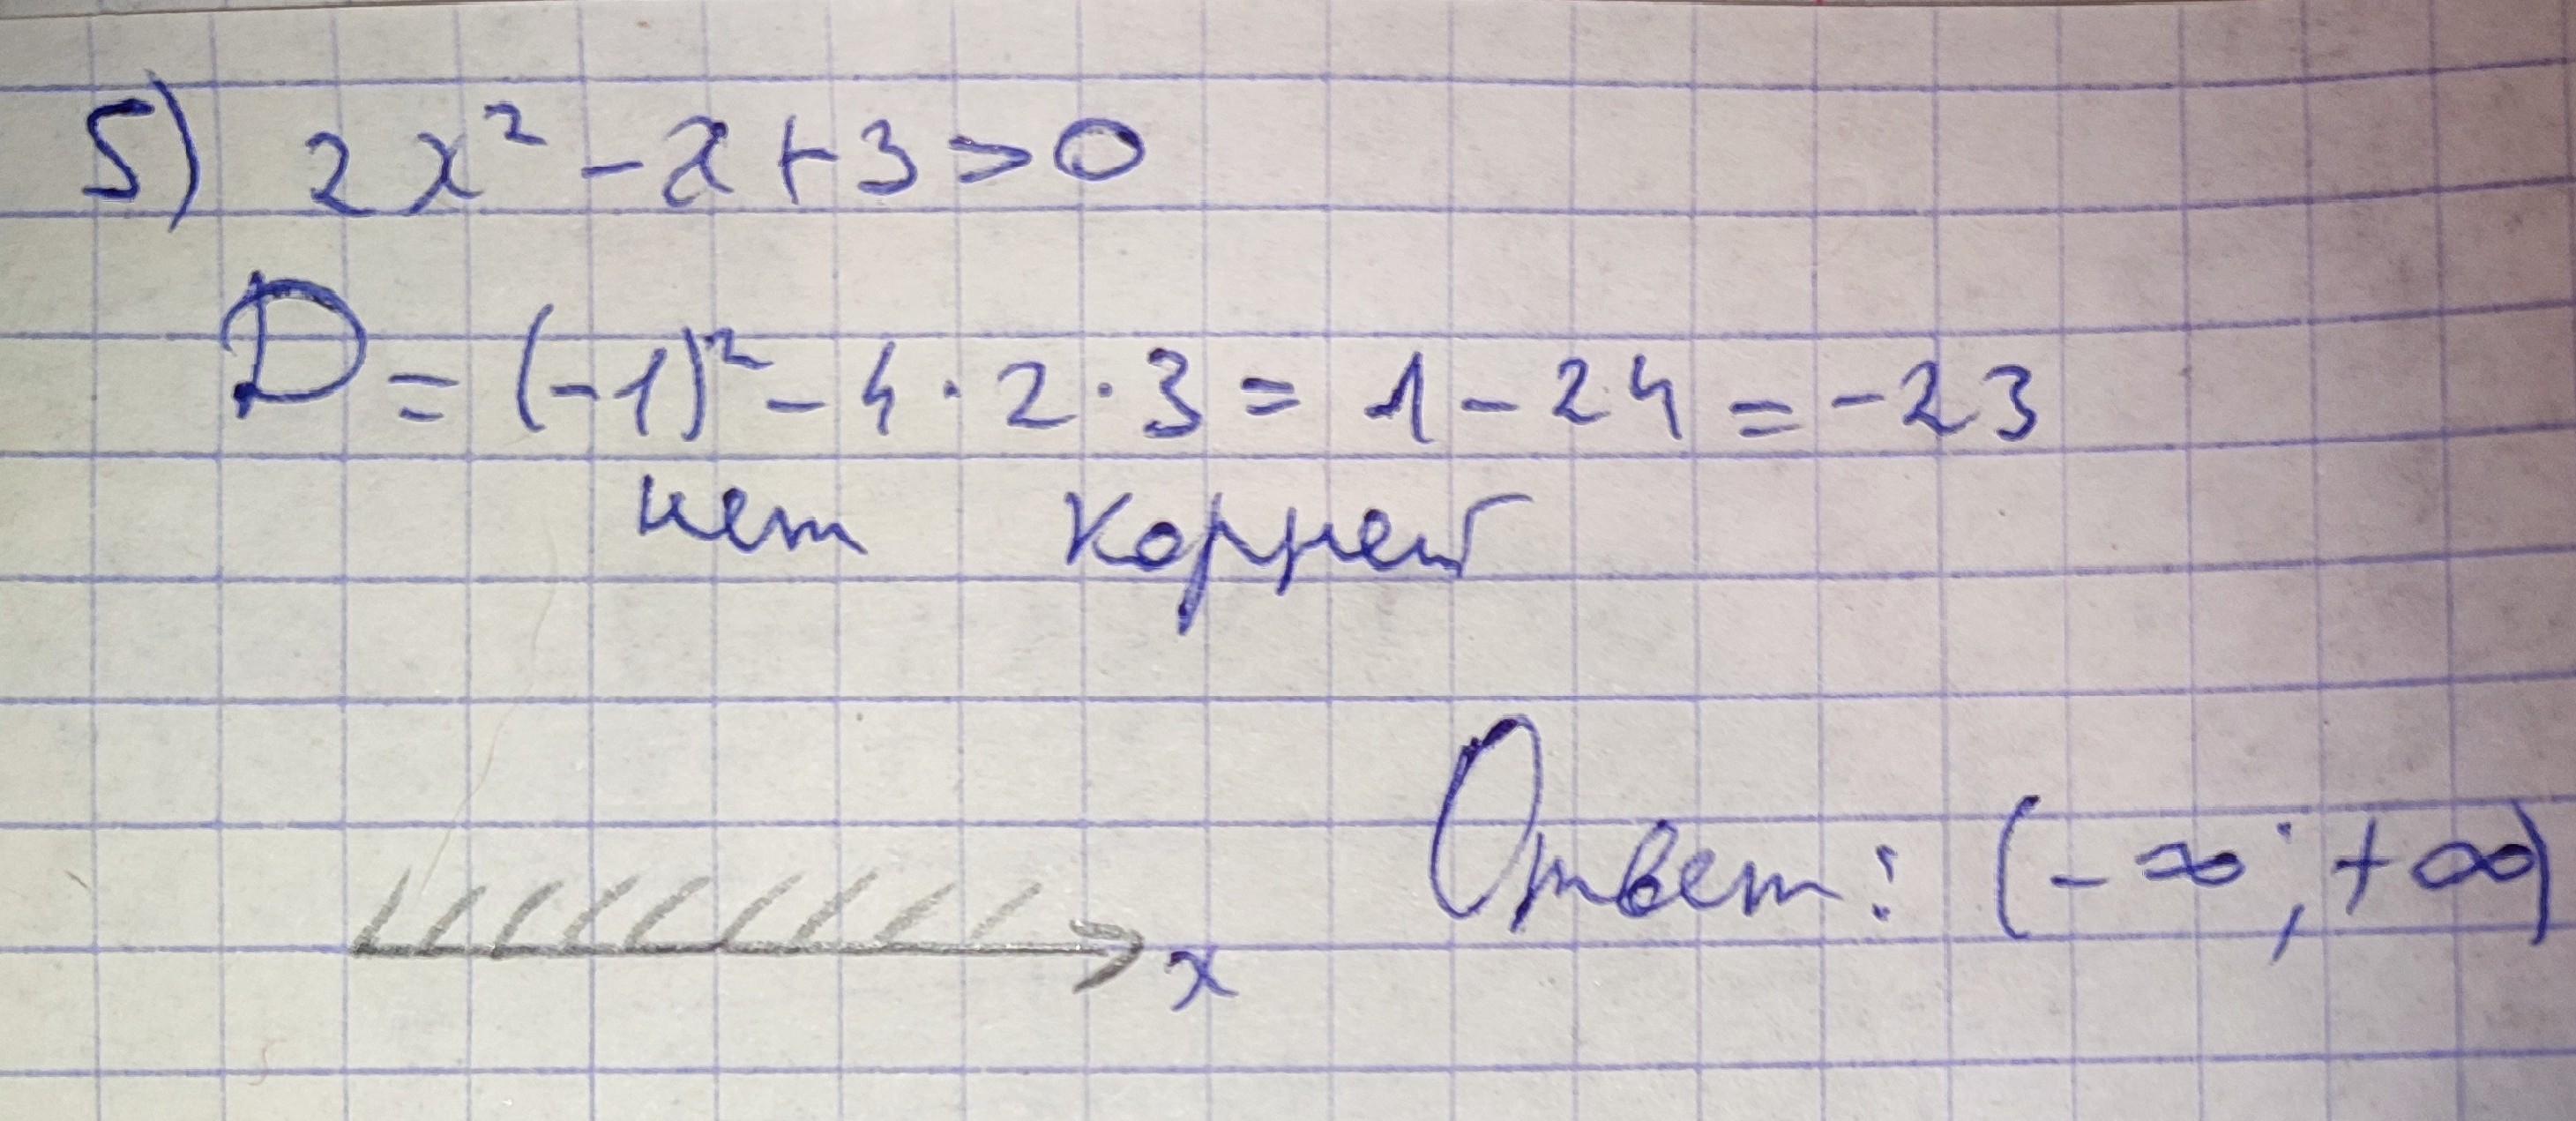 5) 2x² - x + 3 > 0
D = (-1)² - 4 · 2 · 3 = 1 - 24 = -23
нет корней
Ответ: (-∞; +∞)
x